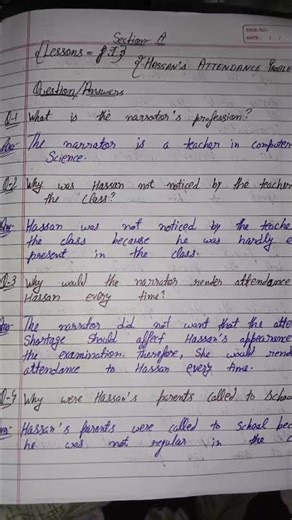 Section A
{Lessons = I} {HASSAN'S ATTENDANCE
Question/Answers
Q-1 What is the narrator's profession?
The narrator is a teacher in computer
Science.
Q-2 Why was Hassan not noticed by the teacher
the class?
Hassan was not noticed by the
the class because he was hardly
present in the class.
Q-3 Why would the narrator render attendance
Hassan every time?
The narrator did not want that the
Shortage should affect Hassan's appearance
the examination. Therefore, She would
attendance to Hassan every time.
Q-4 Why were Hassan's parents called to
Hassan's parents were called to school
he was not regular in the